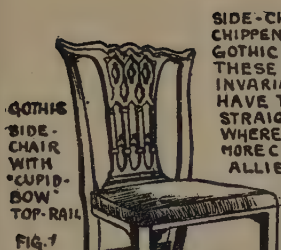 GOTHIC
SIDE-
CHAIR
WITH
"CUPID-
BOW"
TOP-RAIL
FIG. 1
SIDE-CH
CHIPPEN
GOTHIC
THESE
INVARIA
HAVE T
STRAIG
WHERE
MORE C
ALLIE